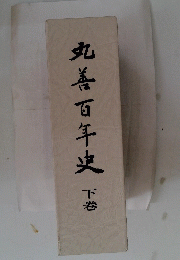 丸善百年史
下巻